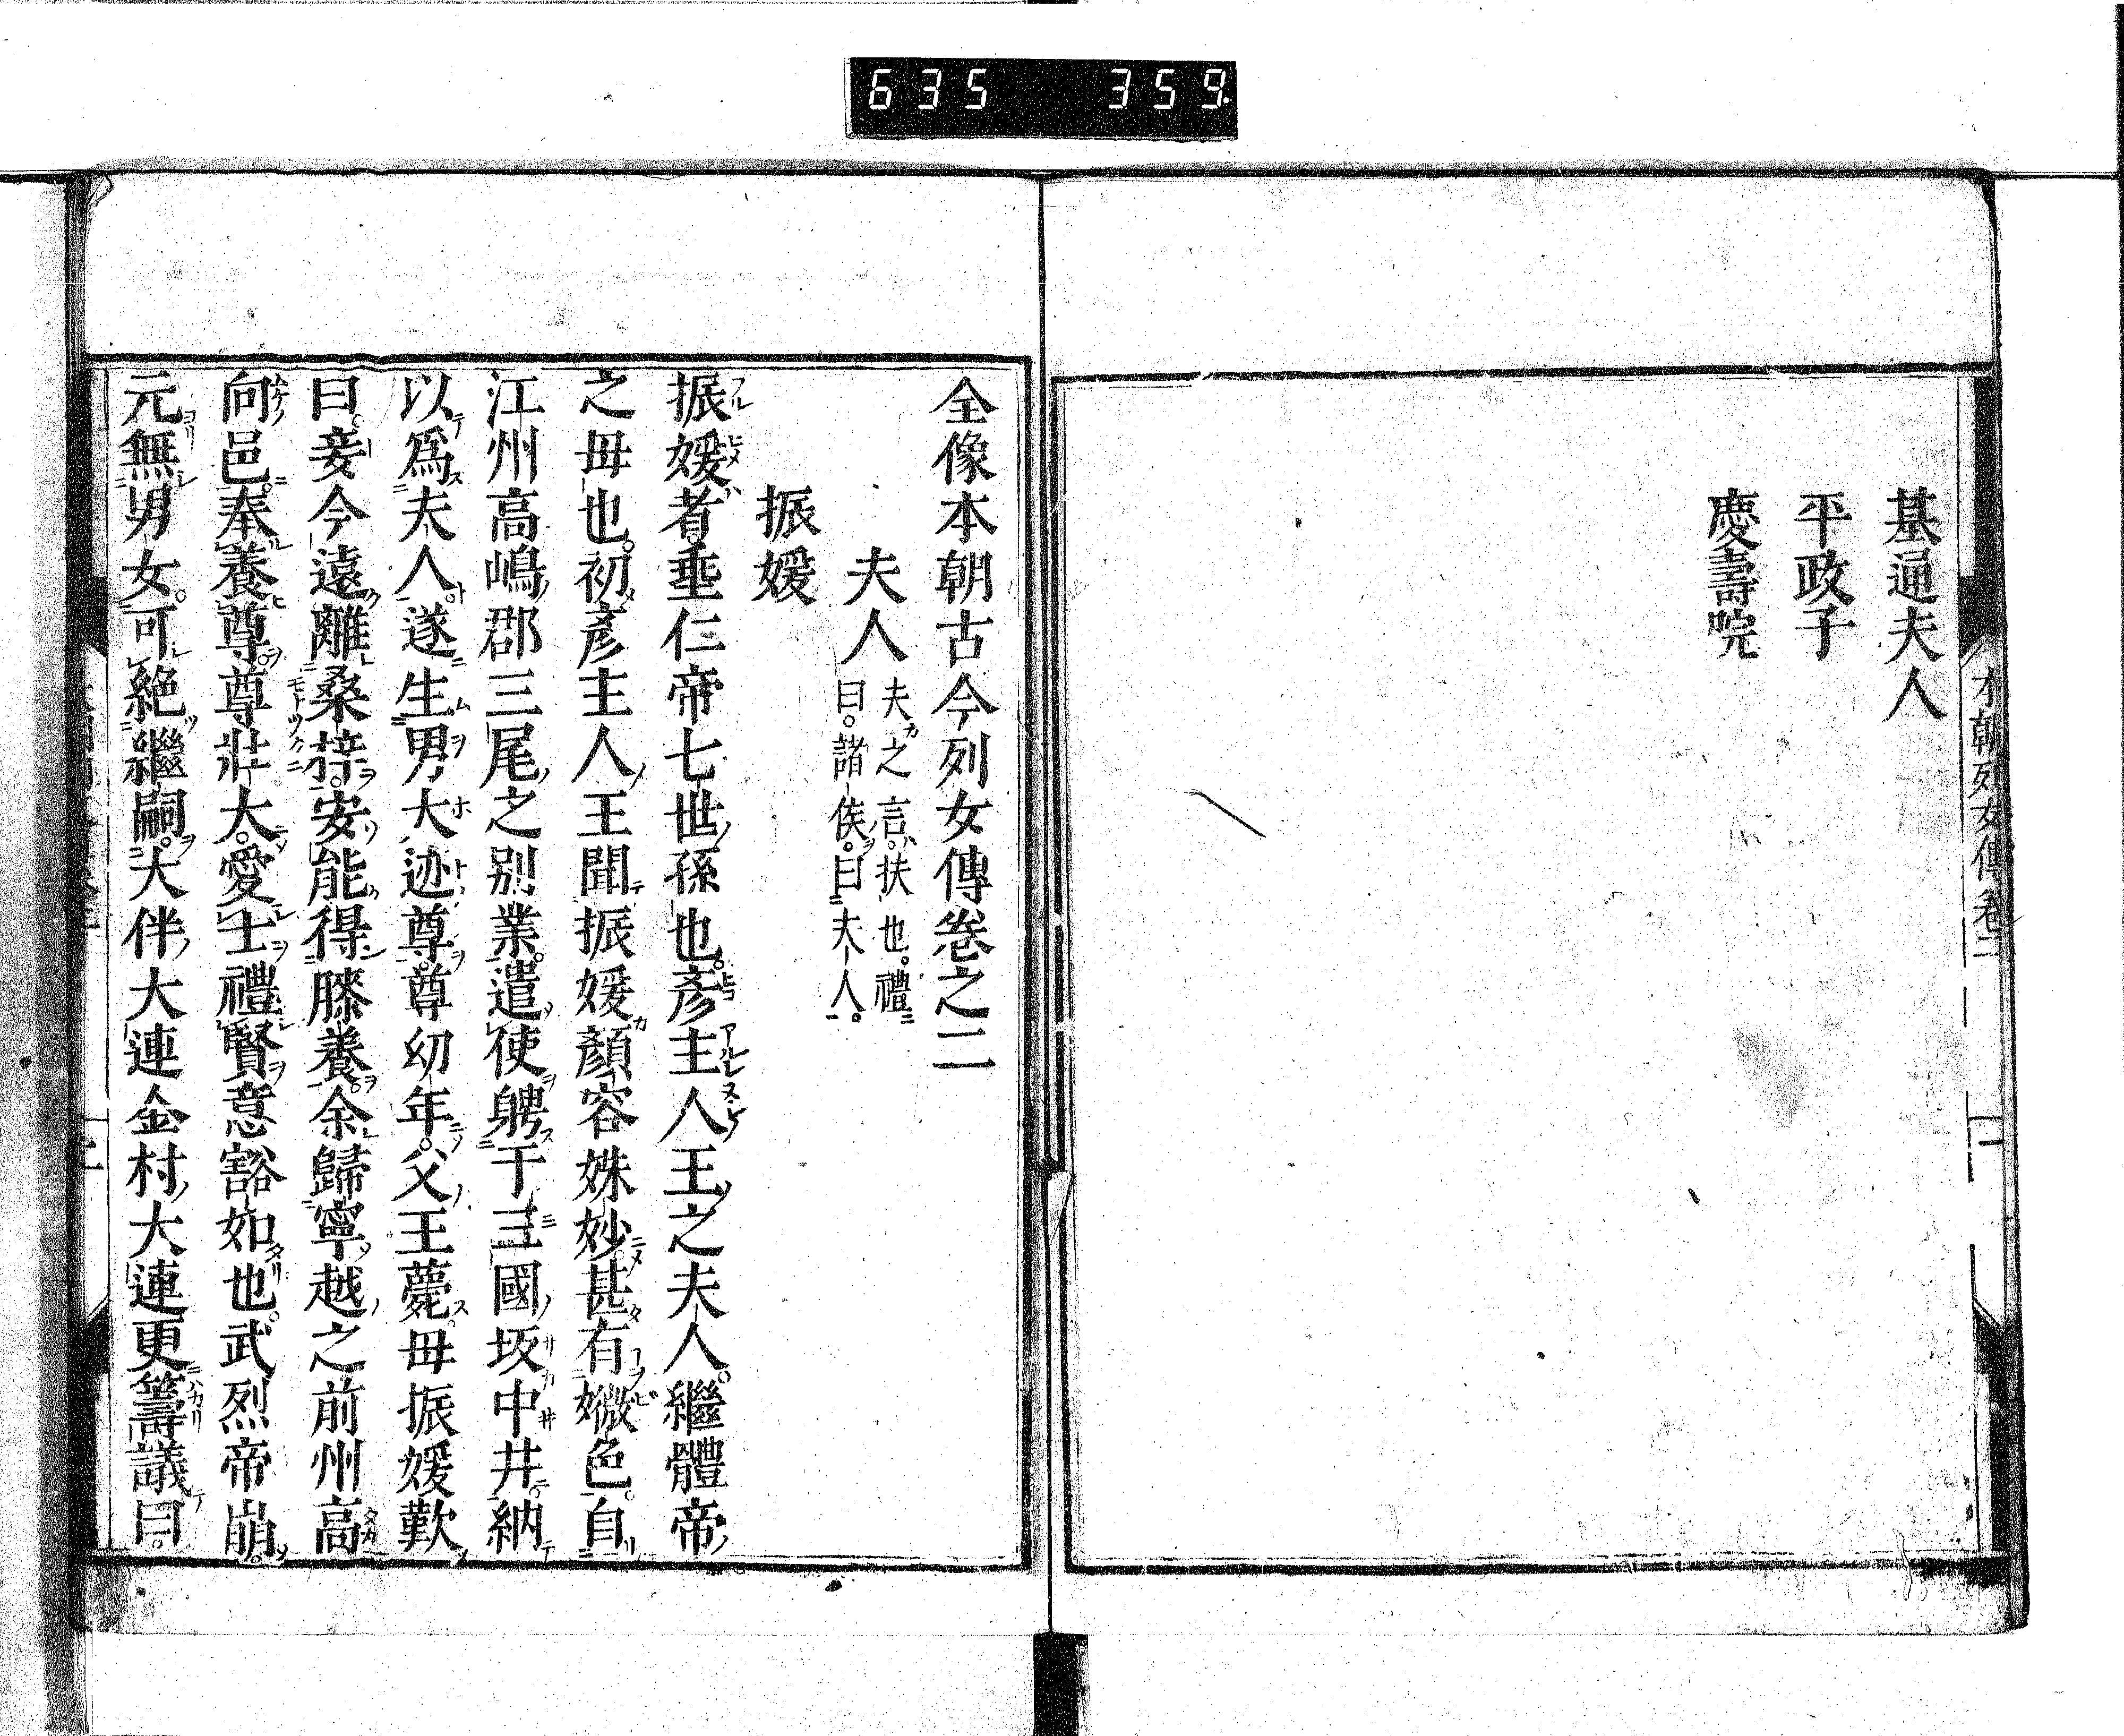 635 359
基通夫人
平政子
慶壽院
本朝列女傳卷二
全像本朝古今列女傳卷之二
夫人 夫之言。扶也。禮曰。諸侯。曰夫人。
振媛
振媛者。垂仁帝七世孫也。彥主人王之夫人。繼體帝
之母也。初彥主人王聞振媛顏容姝妙甚有媺色。自
江州高嶋郡三尾之別業。遣使聘于三國坂中井納
以爲夫人。遂生男大迹尊。尊幼年。父王薨。母振媛歎
曰。妾今遠離桑梓。安能得膝養。余歸寧越之前州高
向邑。奉養尊。尊壯大。愛士禮賢意豁如也。武烈帝崩。
元無男女。可絕繼嗣。大伴大連金村大連更籌議曰。